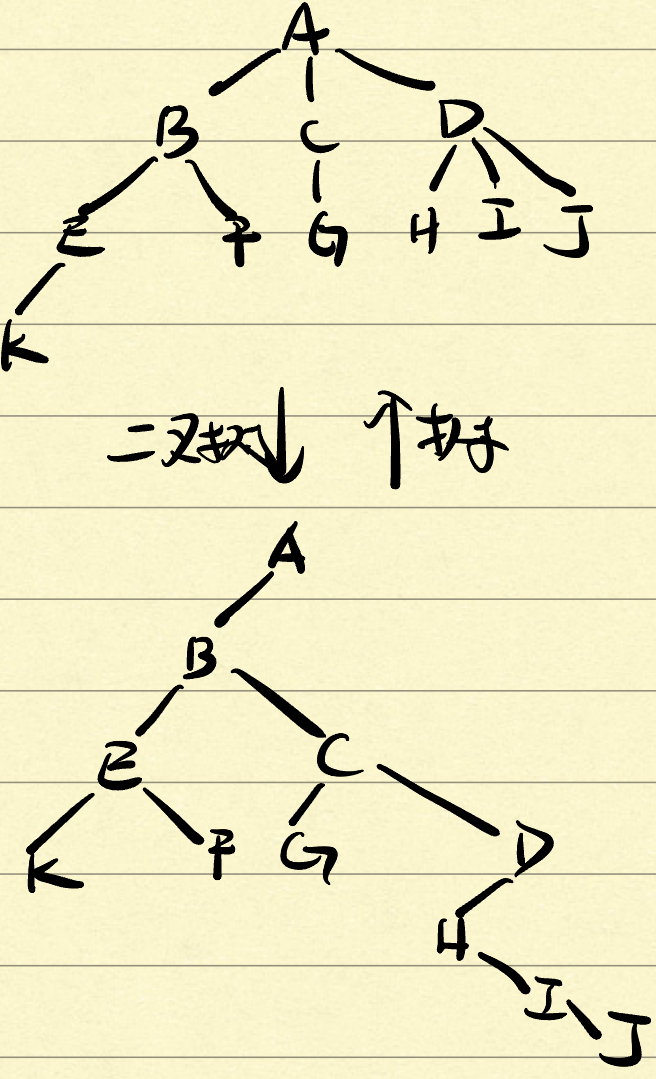 A
B C D
E F G H I J
K
二叉树
A
B
E C
K F G D
H
I
J